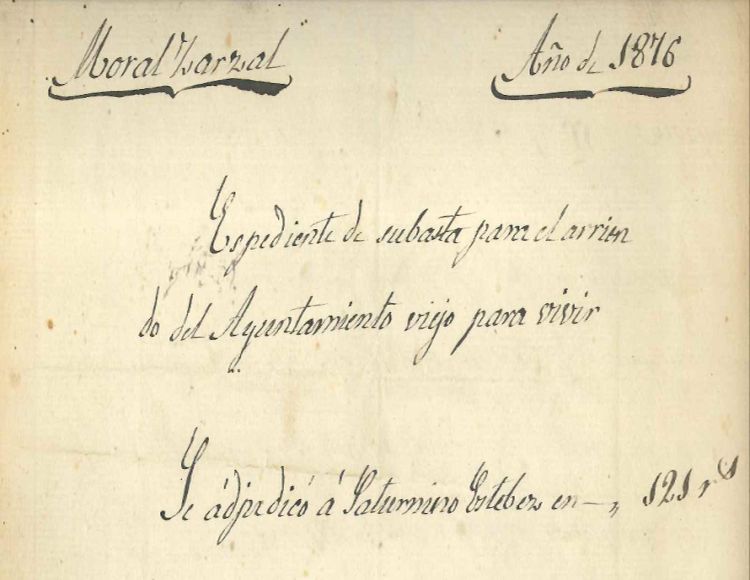 Moralzarzal Año de 1876
Espediente de subasta para el arrien
do del Ayuntamiento viejo para vivir
Se ádjudicó á Saturnino Estebez en — „ 121 rs